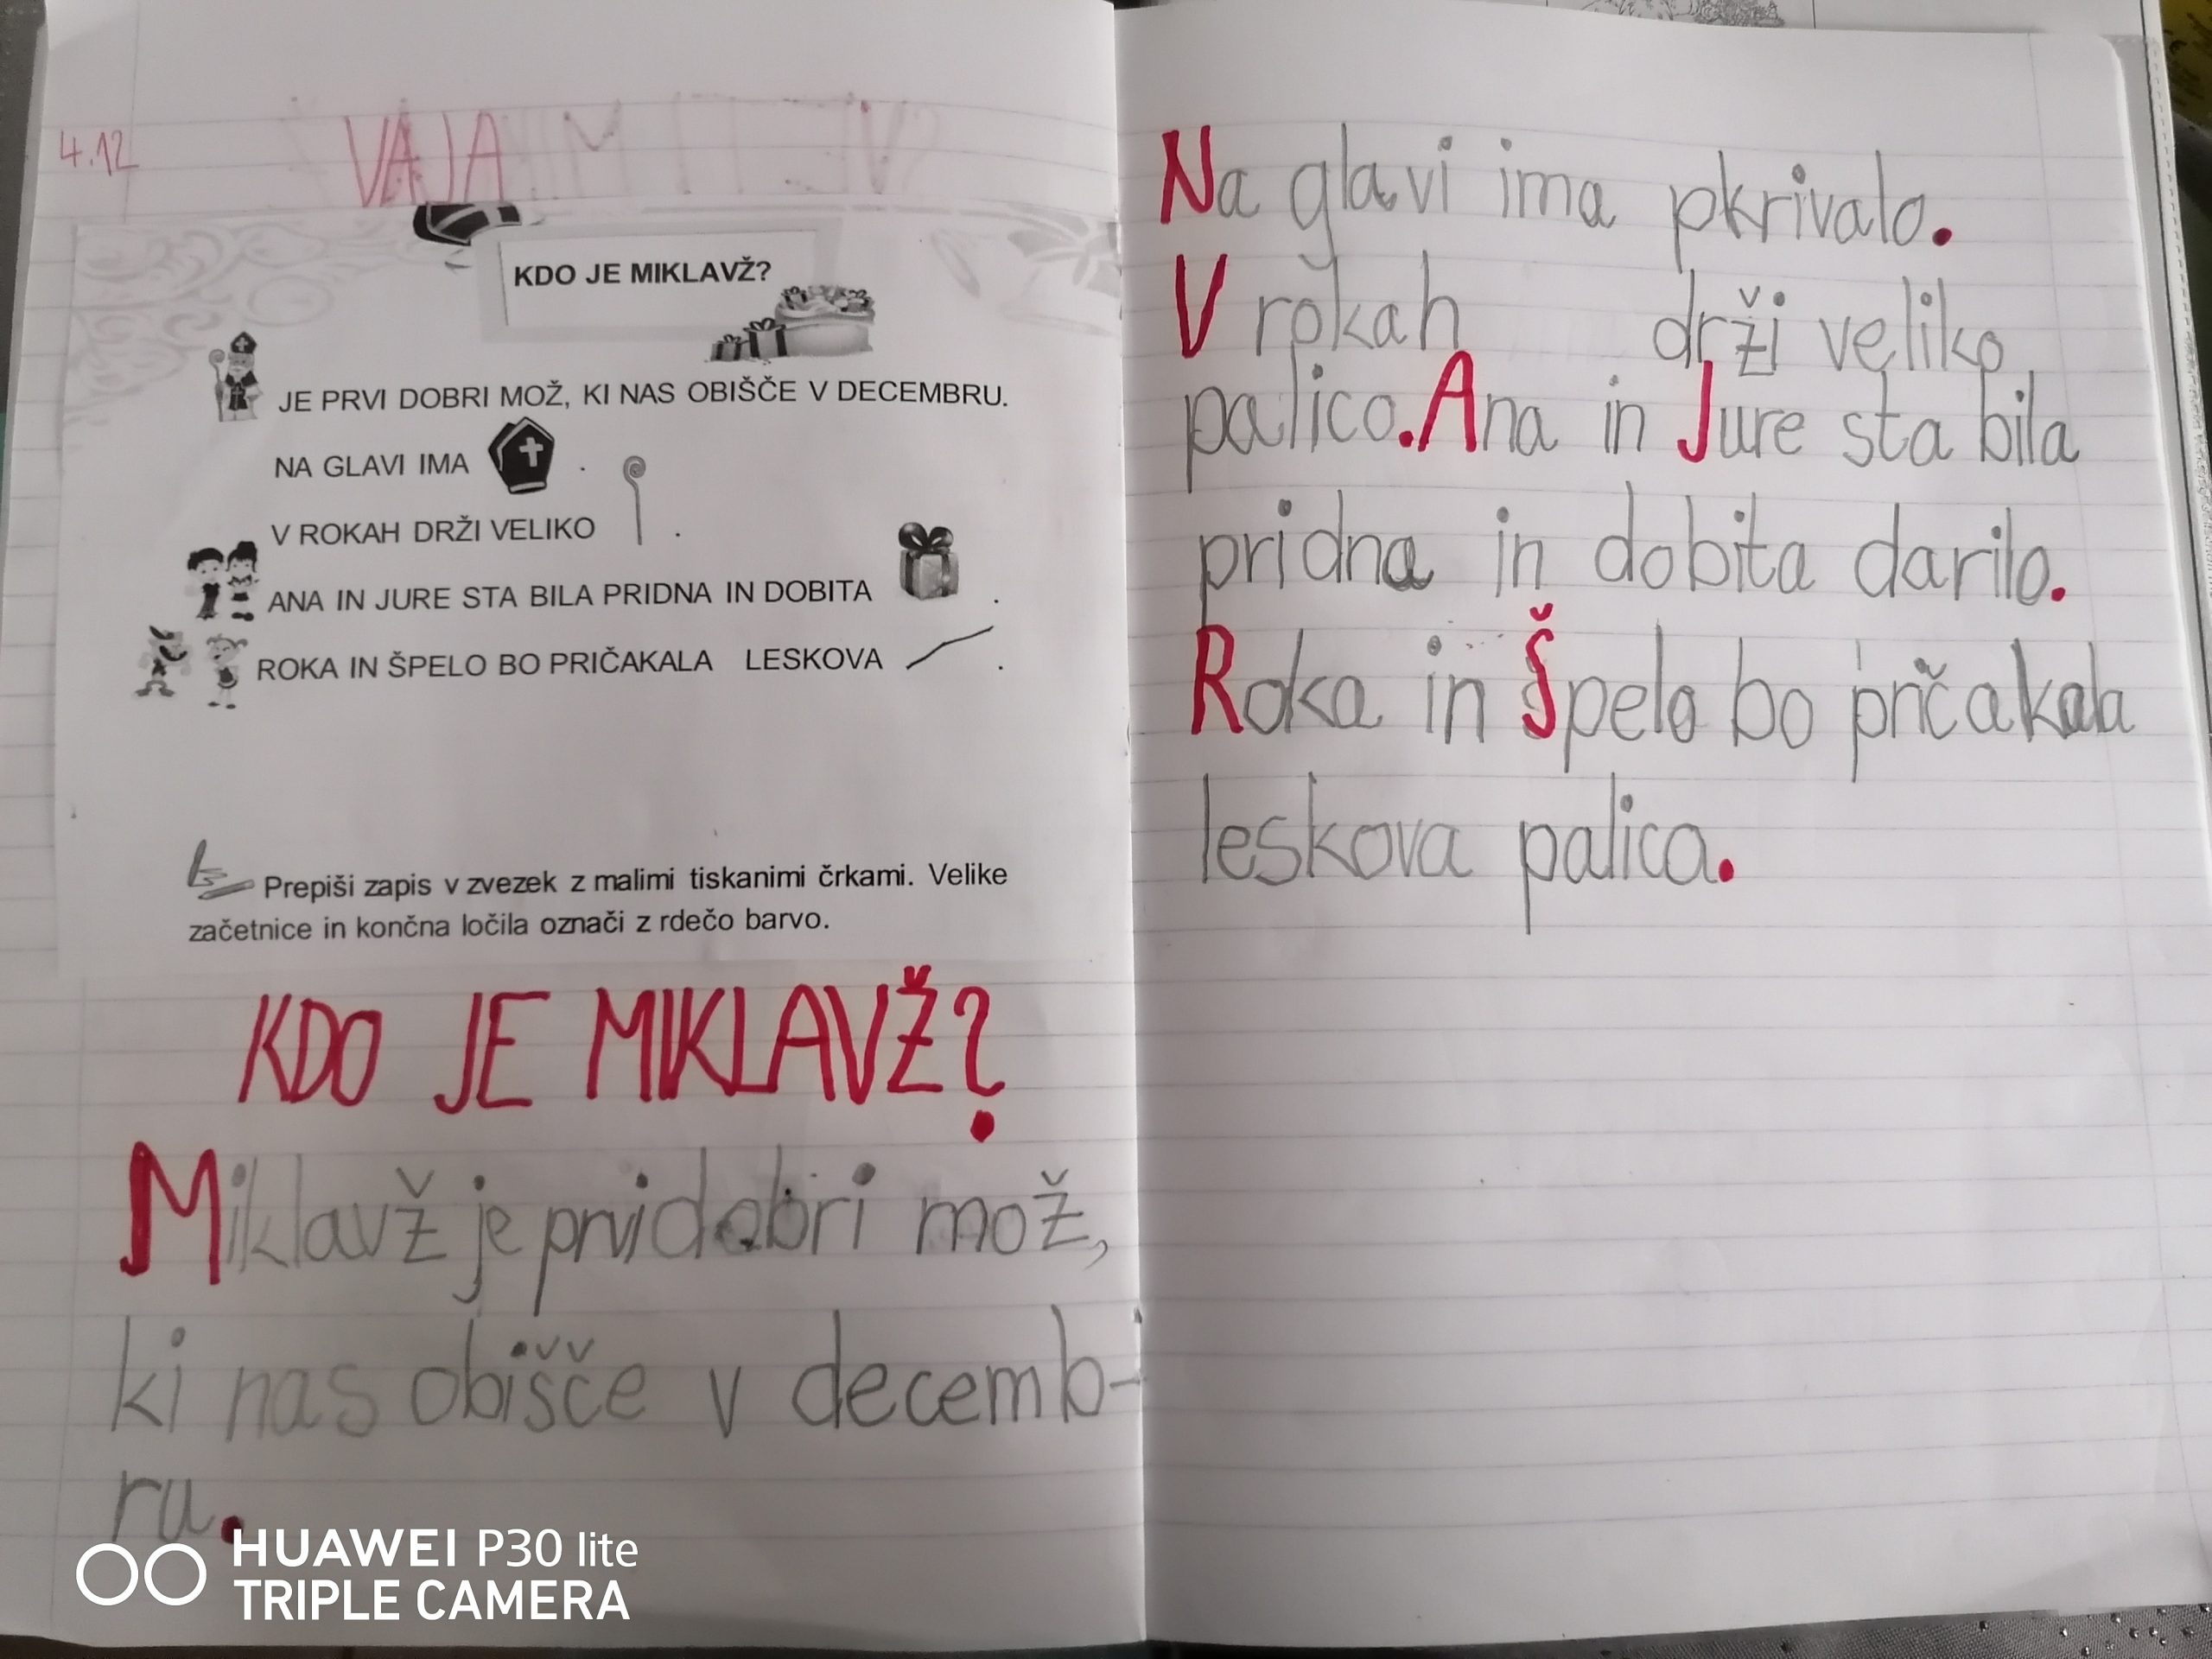 4.12
VAJA
KDO JE MIKLAVŽ?
JE PRVI DOBRI MOŽ, KI NAS OBIŠČE V DECEMBRU.
NA GLAVI IMA .
V ROKAH DRŽI VELIKO .
ANA IN JURE STA BILA PRIDNA IN DOBITA .
ROKA IN ŠPELO BO PRIČAKALA LESKOVA .
Prepiši zapis v zvezek z malimi tiskanimi črkami. Velike
začetnice in končna ločila označi z rdečo barvo.
KDO JE MIKLAVŽ?
Miklavž je prvi dobri mož,
ki nas obišče v decemb-
ru.
Na glavi ima pkrivalo.
V rokah drži veliko
palico. Ana in Jure sta bila
pridna in dobita darilo.
Roka in Špelo bo pričakala
leskova palica.
HUAWEI P30 lite
TRIPLE CAMERA